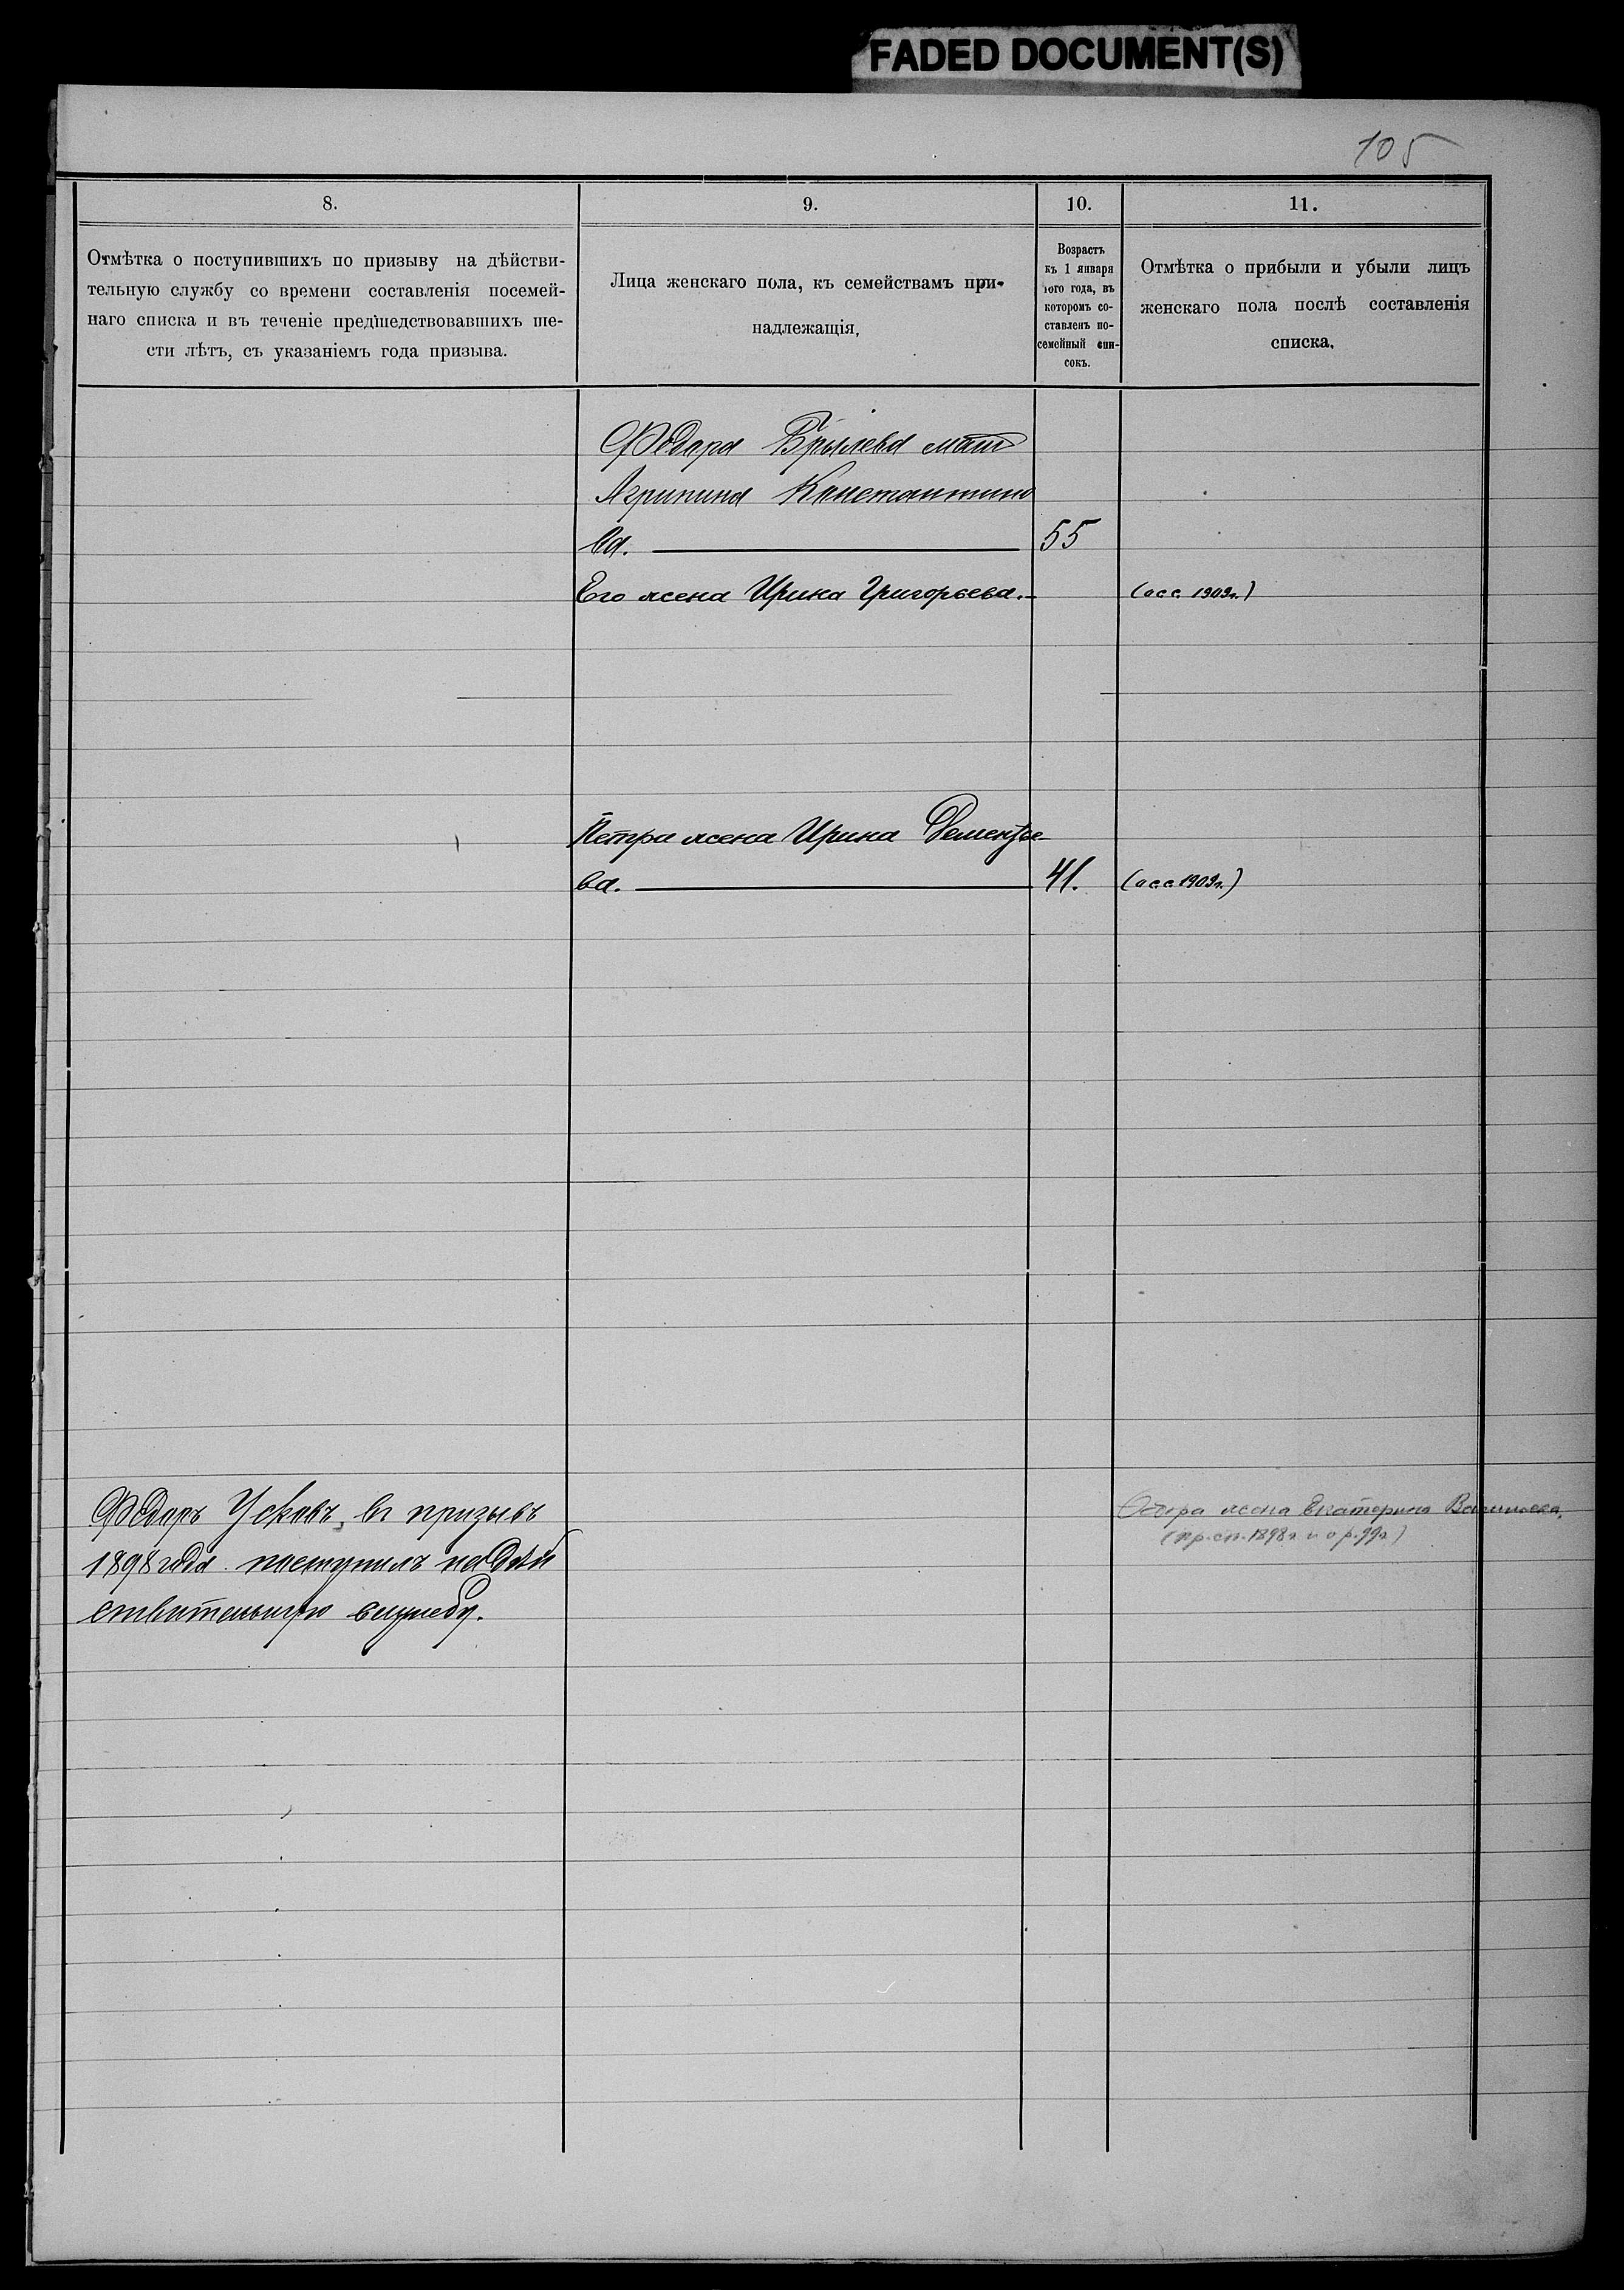 FADED DOCUMENT(S)
105
8.
9.
10.
11.
Отмѣтка о поступившихъ по призыву на дѣйстви-
тельную службу со времени составленія посемей-
наго списка и въ теченіе предшедствовавшихъ ше-
сти лѣтъ, съ указаніемъ года призыва.
Лица женскаго пола, къ семействамъ при-
надлежащія,
Возрастъ
къ 1 января
того года, въ
которомъ со-
ставленъ по-
семейный спи-
сокъ.
Отмѣтка о прибыли и убыли лицъ
женскаго пола послѣ составленія
списка.
Ѳедора Брылева мать
Агрипина Константино
ва. 55
Его жена Ирина Григорьева. (осс. 1909г.)
Петра жена Ирина Дементье-
ва. 41. (осс. 1909г.)
Ѳедоръ Усковъ, въ призывъ
1898 года поступилъ на дѣй
ствительную службу.
жена Екатерина
(пр. сп. 1898г. и о р. 99г)